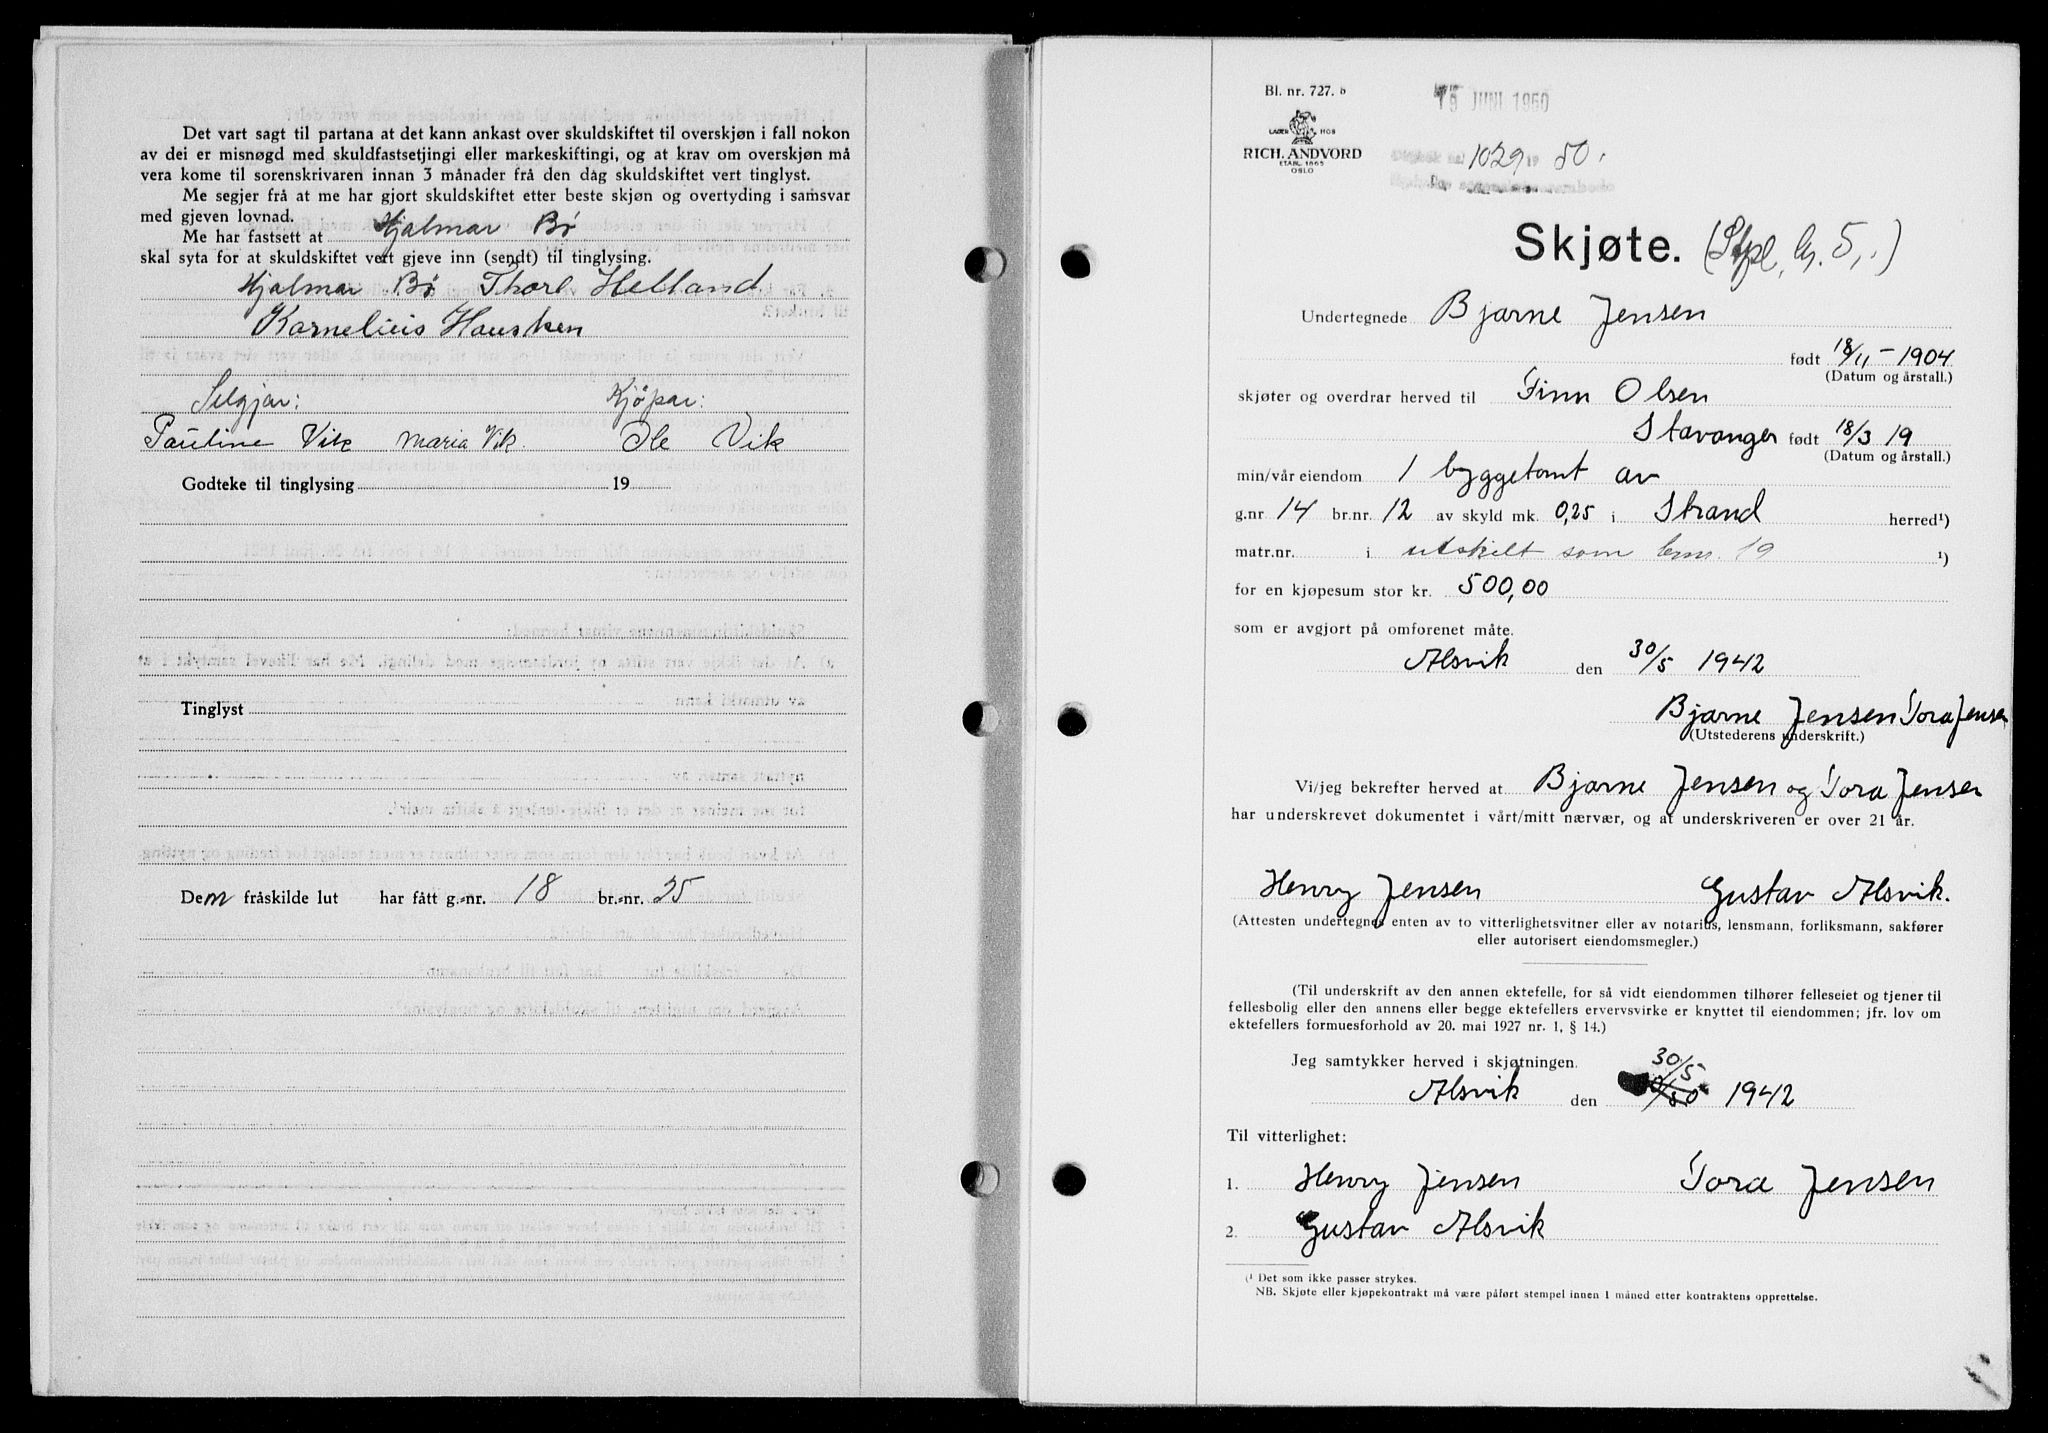 Det vart sagt til partana at det kann ankast over skuldskiftet til overskjøn i fall nokon
av dei er misnøgd med skuldfastsetjingi eller markeskiftingi, og at krav om overskjøn må
vera kome til sorenskrivaren innan 3 månader frå den dåg skuldskiftet vert tinglyst.
Me segjer frå at me har gjort skuldskiftet etter beste skjøn og overtyding i samsvar
med gjeven lovnad.
Me har fastsett at Hjalmar Bø
skal syta for at skuldskiftet vert gjeve inn (sendt) til tinglysing.
Hjalmar Bø Thorl Helland
Kornelius Hausken
Selgjar: Kjöpar:
Pauline Vik Maria Vik. Ole Vik
Godteke til tinglysing 19
Tinglyst
Dem fråskilde lut har fått g.-nr. 18 br.-nr. 25
Bl. nr. 727. b
19 JUNI 1950
LAGER HOS
RICH. ANDVORD
ETABL. 1865
OSLO
1029 19 50.
Skjøte. (Stpl. kr. 5,.)
Undertegnede Bjarne Jensen
født 18/11 - 1904
(Datum og årstall.)
skjøter og overdrar herved til Finn Olsen
Stavanger født 18/3 19
(Datum og årstall.)
min/vår eiendom 1 byggetomt av
g.nr 14 br.nr. 12 av skyld mk. 0,25 i Strand herred¹)
matr.nr. i utskilt som bnr. 19 ¹)
for en kjøpesum stor kr. 500,00
som er avgjort på omforenet måte.
Alsvik den 30/5 1942
Bjarne Jensen Tora Jensen
(Utstederens underskrift.)
Vi/jeg bekrefter herved at Bjarne Jensen og Tora Jensen
har underskrevet dokumentet i vårt/mitt nærvær, og at underskriveren er over 21 år.
Henry Jensen Gustav Alsvik.
(Attesten undertegnes enten av to vitterlighetsvitner eller av notarius, lensmann, forliksmann, sakfører
eller autorisert eiendomsmegler.)
(Til underskrift av den annen ektefelle, for så vidt eiendommen tilhører felleseiet og tjener til
fellesbolig eller den annens eller begge ektefellers ervervsvirke er knyttet til eiendommen; jfr. lov om
ektefellers formuesforhold av 20. mai 1927 nr. 1, § 14.)
Jeg samtykker herved i skjøtningen.
30/5
Alsvik den 1942
Til vitterlighet:
1. Henry Jensen Tora Jensen
2. Gustav Alsvik
(¹ Det som ikke passer strykes.
NB. Skjøte eller kjøpekontrakt må være påført stempel innen 1 måned etter kontraktens opprettelse.